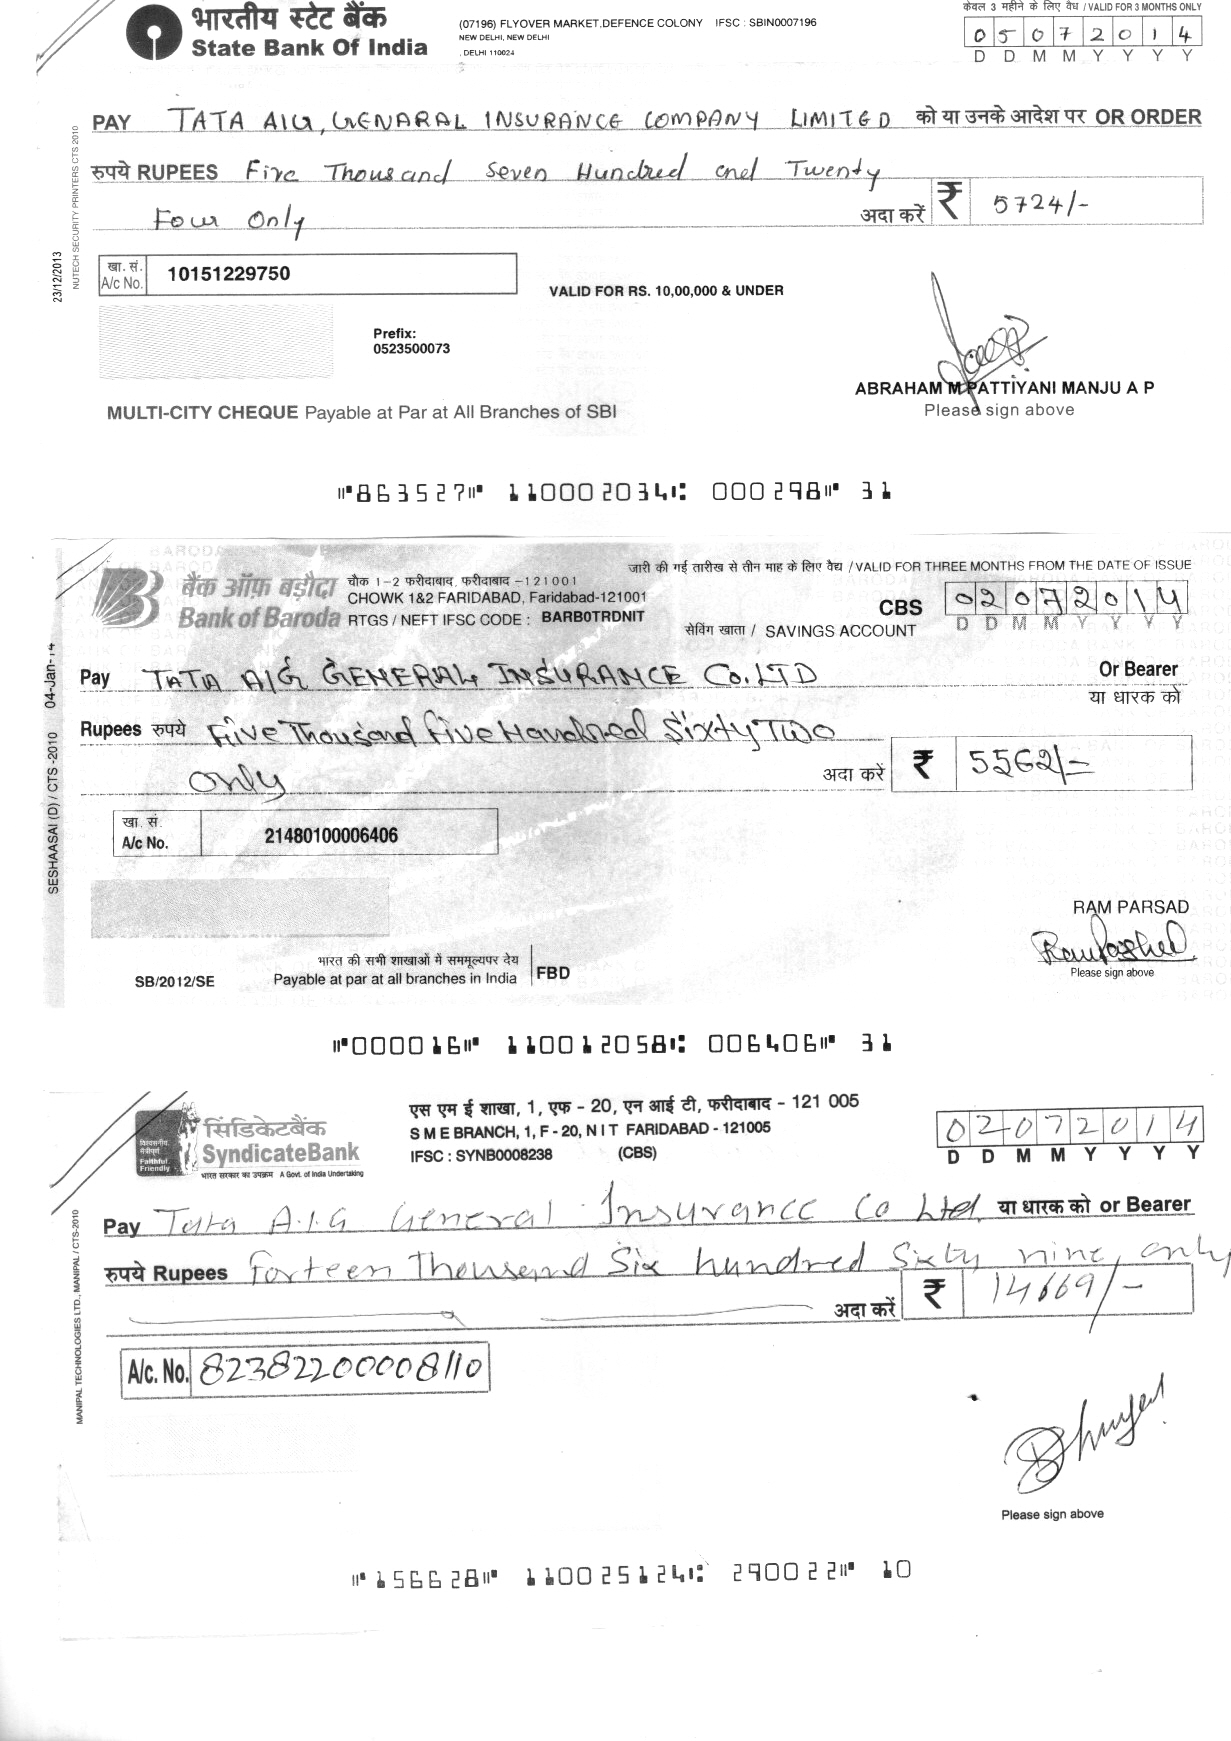 भारतीय स्टेट बैंक
State Bank Of India
(07196) FLYOVER MARKET,DEFENCE COLONY IFSC : SBIN0007196
NEW DELHI, NEW DELHI
, DELHI 110024
केवल 3 महीने के लिए वैध / VALID FOR 3 MONTHS ONLY
0 5 0 7 2 0 1 4
D D M M Y Y Y Y
PAY TATA AIG, GENARAL INSURANCE COMPANY LIMITED को या उनके आदेश पर OR ORDER
रुपये RUPEES Five Thousand Seven Hundred and Twenty
Four Only अदा करें ₹ 5724/-
खा. सं. A/c No. 10151229750
VALID FOR RS. 10,00,000 & UNDER
Prefix:
0523500073
ABRAHAM M PATTIYANI MANJU A P
Please sign above
MULTI-CITY CHEQUE Payable at Par at All Branches of SBI
23/12/2013
NUTECH SECURITY PRINTERS CTS 2010
⑈863527⑈ 110002034⑆ 000298⑈ 31
बैंक ऑफ़ बड़ौदा
Bank of Baroda
चौक 1-2 फरीदाबाद, फरीदाबाद -121001
CHOWK 1&2 FARIDABAD, Faridabad-121001
RTGS / NEFT IFSC CODE : BARB0TRDNIT
जारी की गई तारीख से तीन माह के लिए वैद्य / VALID FOR THREE MONTHS FROM THE DATE OF ISSUE
CBS 0 2 0 7 2 0 1 4
D D M M Y Y Y Y
सेविंग खाता / SAVINGS ACCOUNT
Pay TATA AIG GENERAL INSURANCE Co. LTD Or Bearer
या धारक को
Rupees रुपये Five Thousand Five Handred Sixty Two
only अदा करें ₹ 5562/-
खा. सं. A/c No. 21480100006406
RAM PARSAD
Please sign above
भारत की सभी शाखाओं में सममूल्यपर देय
SB/2012/SE Payable at par at all branches in India FBD
SESHAASAI (D) / CTS -2010 04-Jan-14
⑈000016⑈ 110012058⑆ 006406⑈ 31
सिंडिकेटबैंक
SyndicateBank
भारत सरकार का उपक्रम A Govt. of India Undertaking
Faithful
Friendly
एस एम ई शाखा, 1, एफ - 20, एन आई टी, फरीदाबाद - 121 005
S M E BRANCH, 1, F - 20, N I T FARIDABAD - 121005
IFSC : SYNB0008238 (CBS)
0 2 0 7 2 0 1 4
D D M M Y Y Y Y
Pay Tata A.I.G General Insurance Co Ltd. या धारक को or Bearer
रुपये Rupees Forteen Thousend Six hundred Sixty nine, only
अदा करें ₹ 14669/-
A/c. No. 82382200008110
Please sign above
MANIPAL TECHNOLOGIES LTD., MANIPAL / CTS-2010
⑈156628⑈ 110025124⑆ 290022⑈ 10